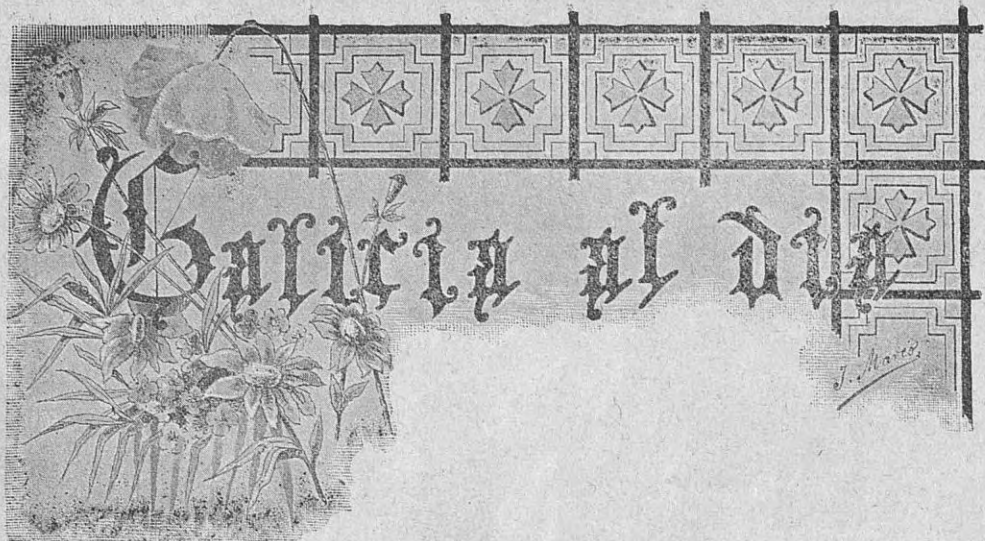 Galicia al dia
J. Marco